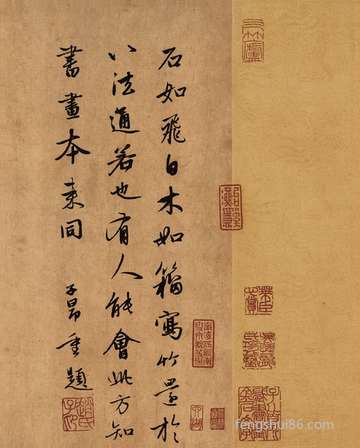 石如飛白木如籀寫竹還於
八法通若也有人能會此方知
書畫本來同
子昂重題
趙氏子昂
fengshui86.com